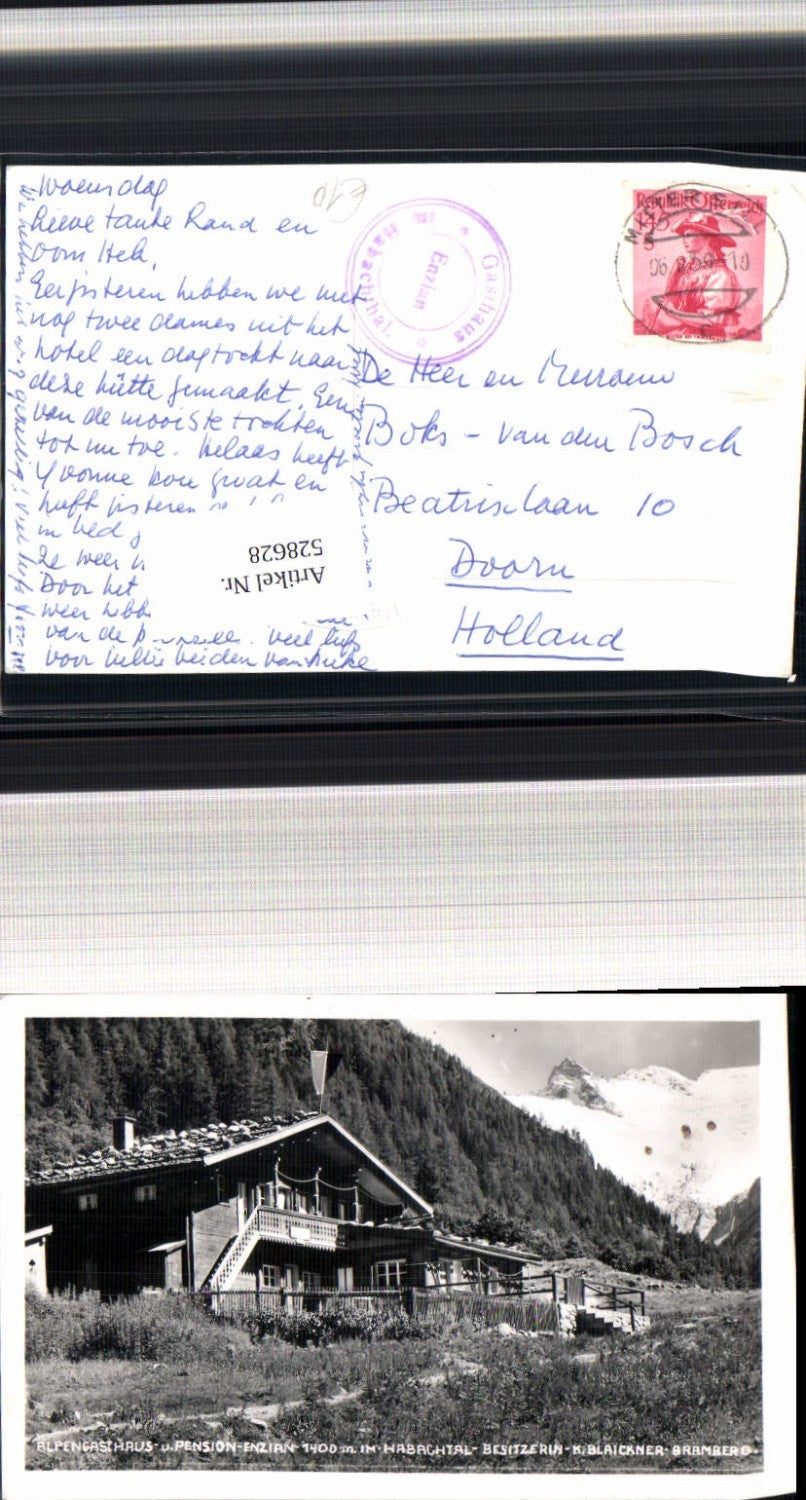 Woensdag
Lieve tante Rand en
oom Heh,
Eergisteren hebben we met
nog twee dames uit het
hotel een dagtocht naar
deze hütte gemaakt. Een
van de mooiste tochten
tot nu toe. Helaas heeft
Yvonne kou gevat en
heeft gisteren
in bed
Ze weer
Door het
weer hebb
van de veel liefs
voor jullie beiden van
We hebben het erg gezellig! Veel liefs
£10
Gasthaus
Enzian
im Habachthal.
Republik Österreich
S
06 59-10
De Heer en Mevrouw
Boks - van den Bosch
Beatrixlaan 10
Doorn
Holland
Artikel Nr.
528628
ALPENGASTHAUS - u. PENSION - ENZIAN - 1400 m. IM - HABACHTAL - BESITZERIN - K. BLAICKNER - BRAMBERG.